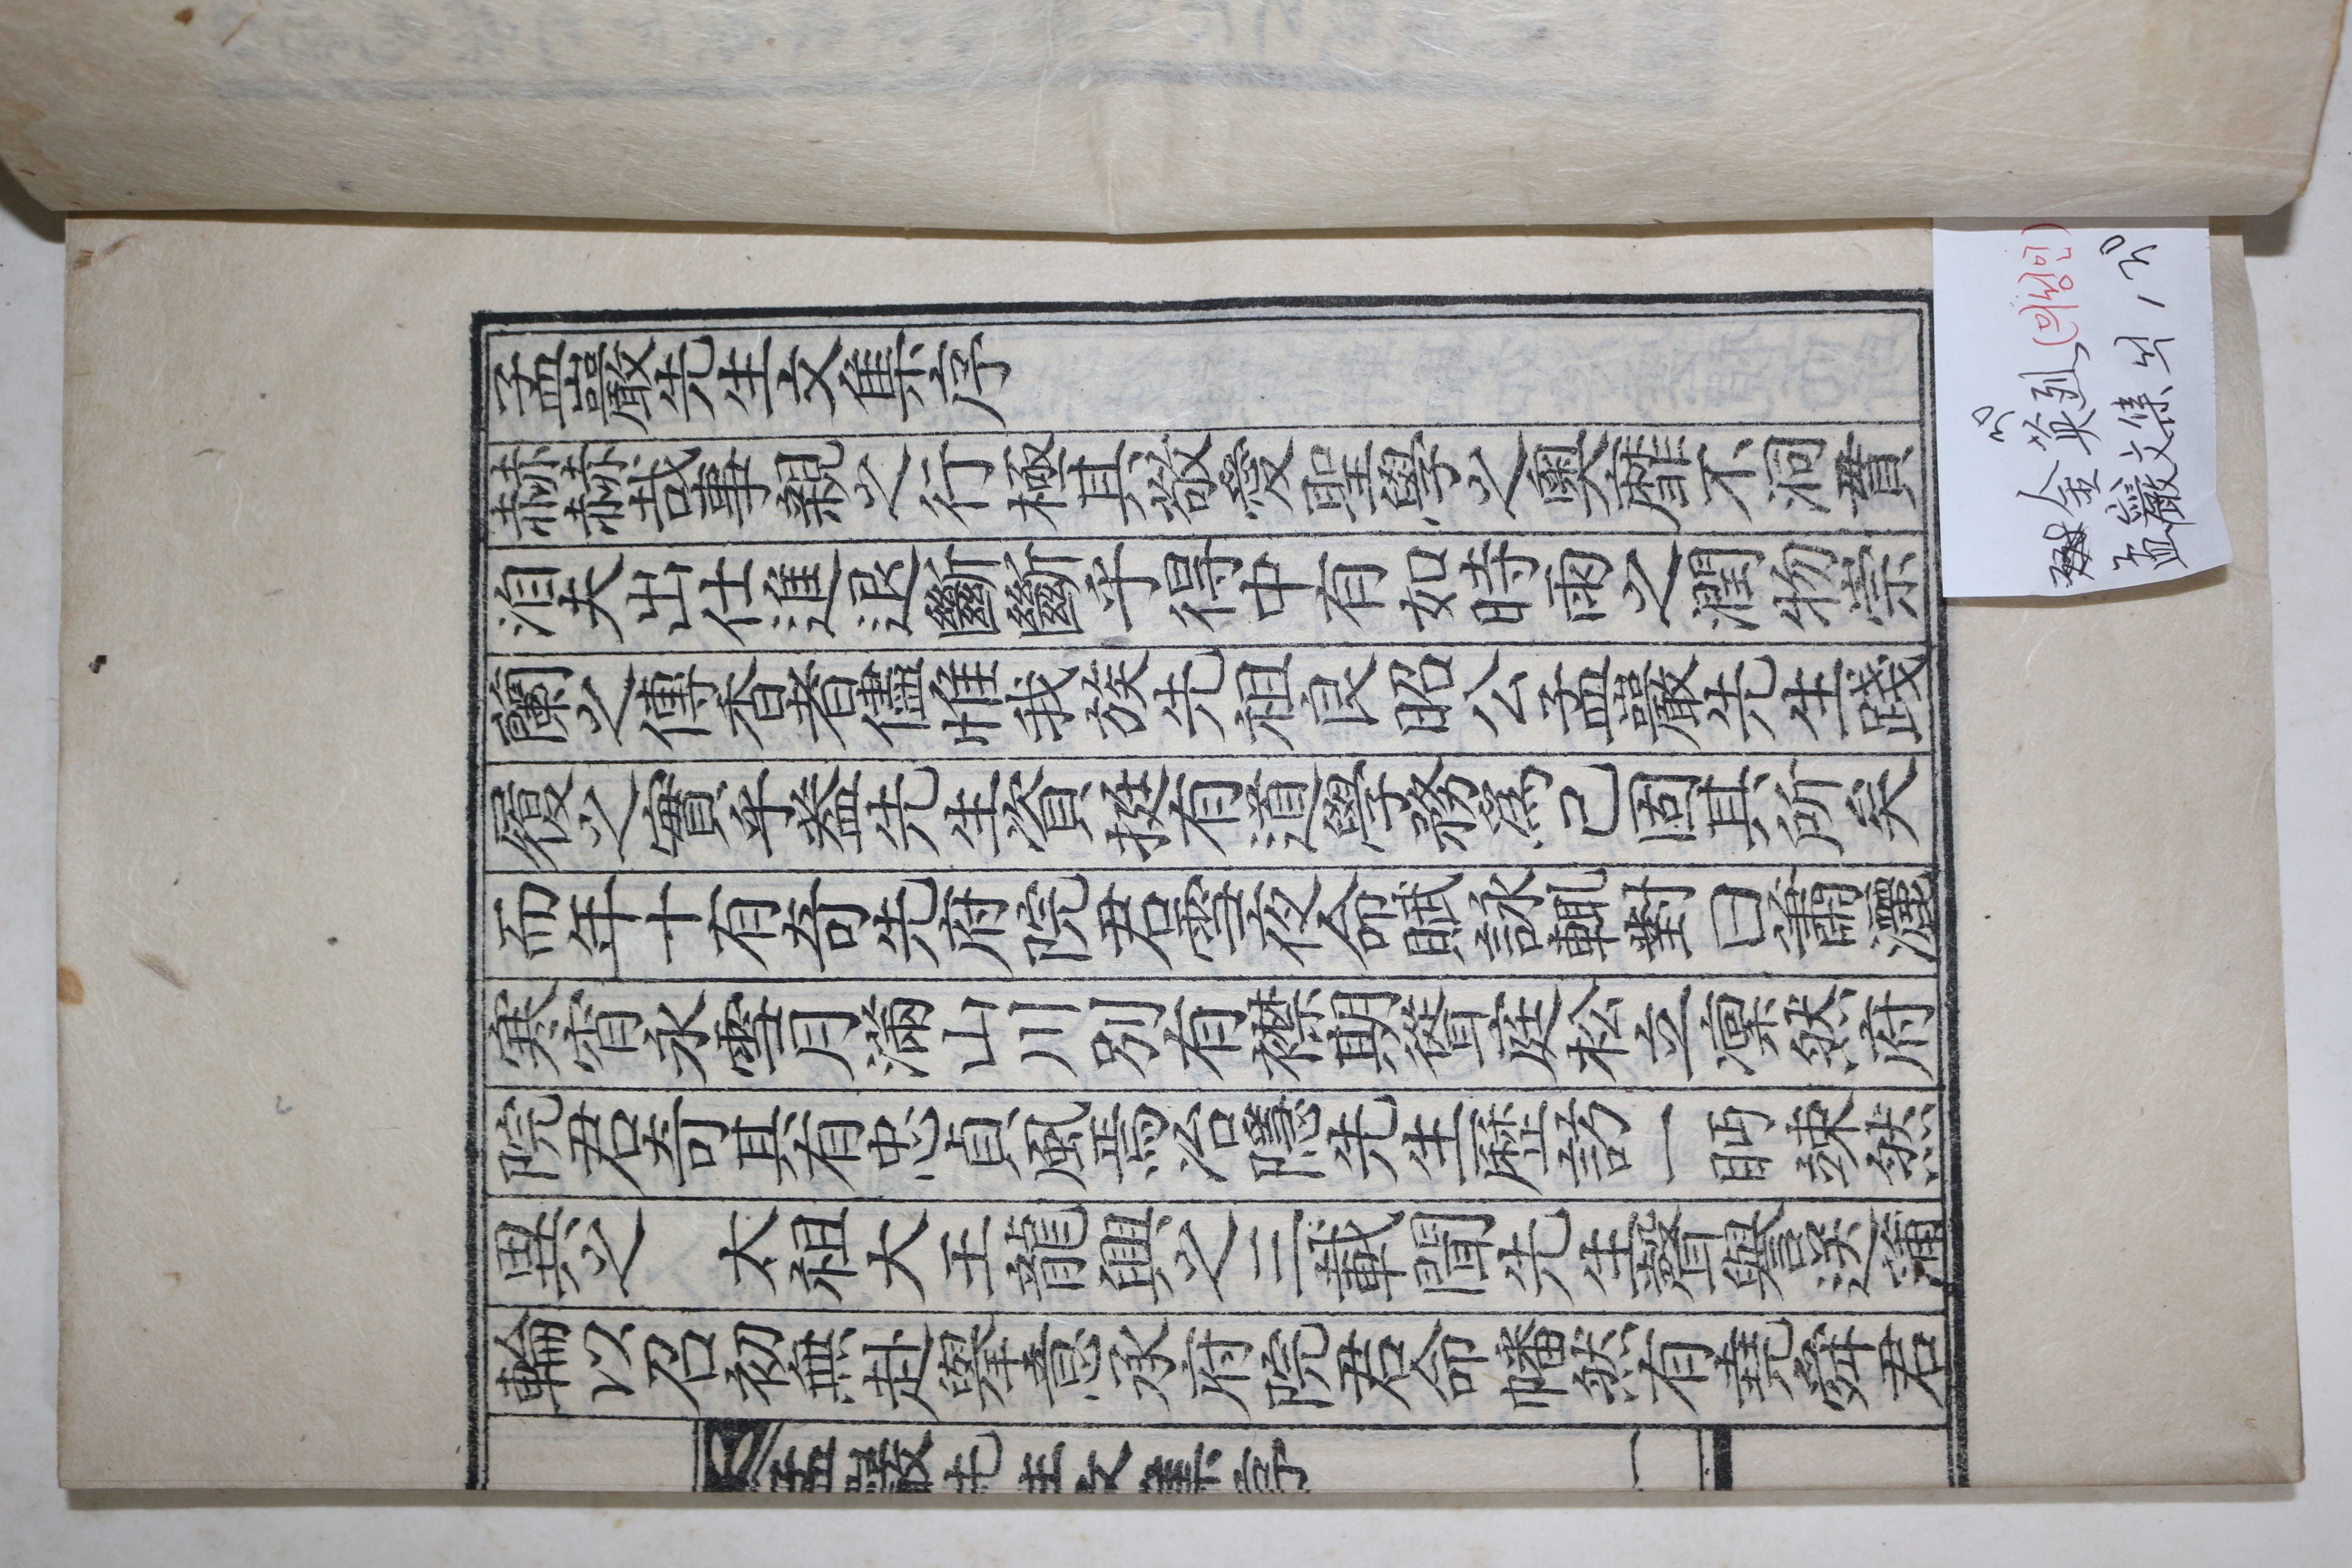 孟巖先生文集序
赫赫哉事親之行極其敬愛聖學之奧靡不洞貫
洎夫出仕進退斷斷乎得中有如時雨之潤物崇
蘭之傳香者儘惟我族先祖良昭公孟巖先生踐
履之實乎蓋先生資挺有道學務爲己固其所矣
而年十有奇先府院君雪夜命賦詠輒對曰蕭灑
寒宵永雪月滿山川別有襟期聳庭松立凜然府
院君奇其有忠貞風焉冶隱先生歷訪一眄竦然
異之　太祖大王龍興之三載聞先生聲譽送蒲
輪以召初無赴擧意承府院君命幡然有堯舜君
孟巖先生文集序
一
30
金英烈(의성인)
孟巖文集 1 30